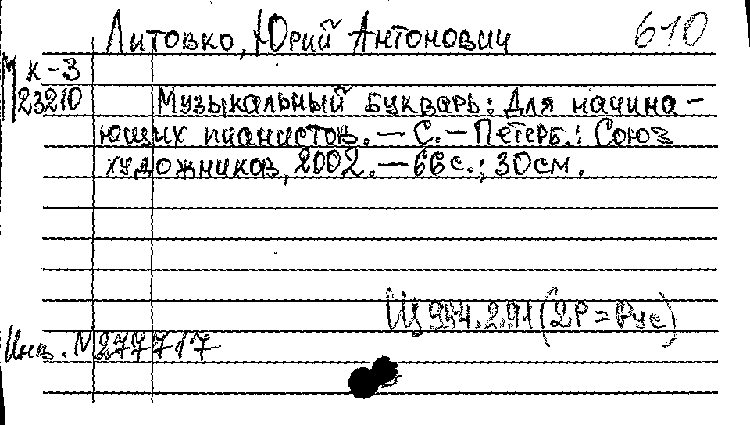 Литовко, Юрий Антонович 610
М к-3
23210 Музыкальный букварь: Для начина-
ющих пианистов. — С.-Петерб.: Союз
художников, 2002. — 66 с.; 30 см.
Щ 954.2.91(2Р=Рус)
Инв. N 277717